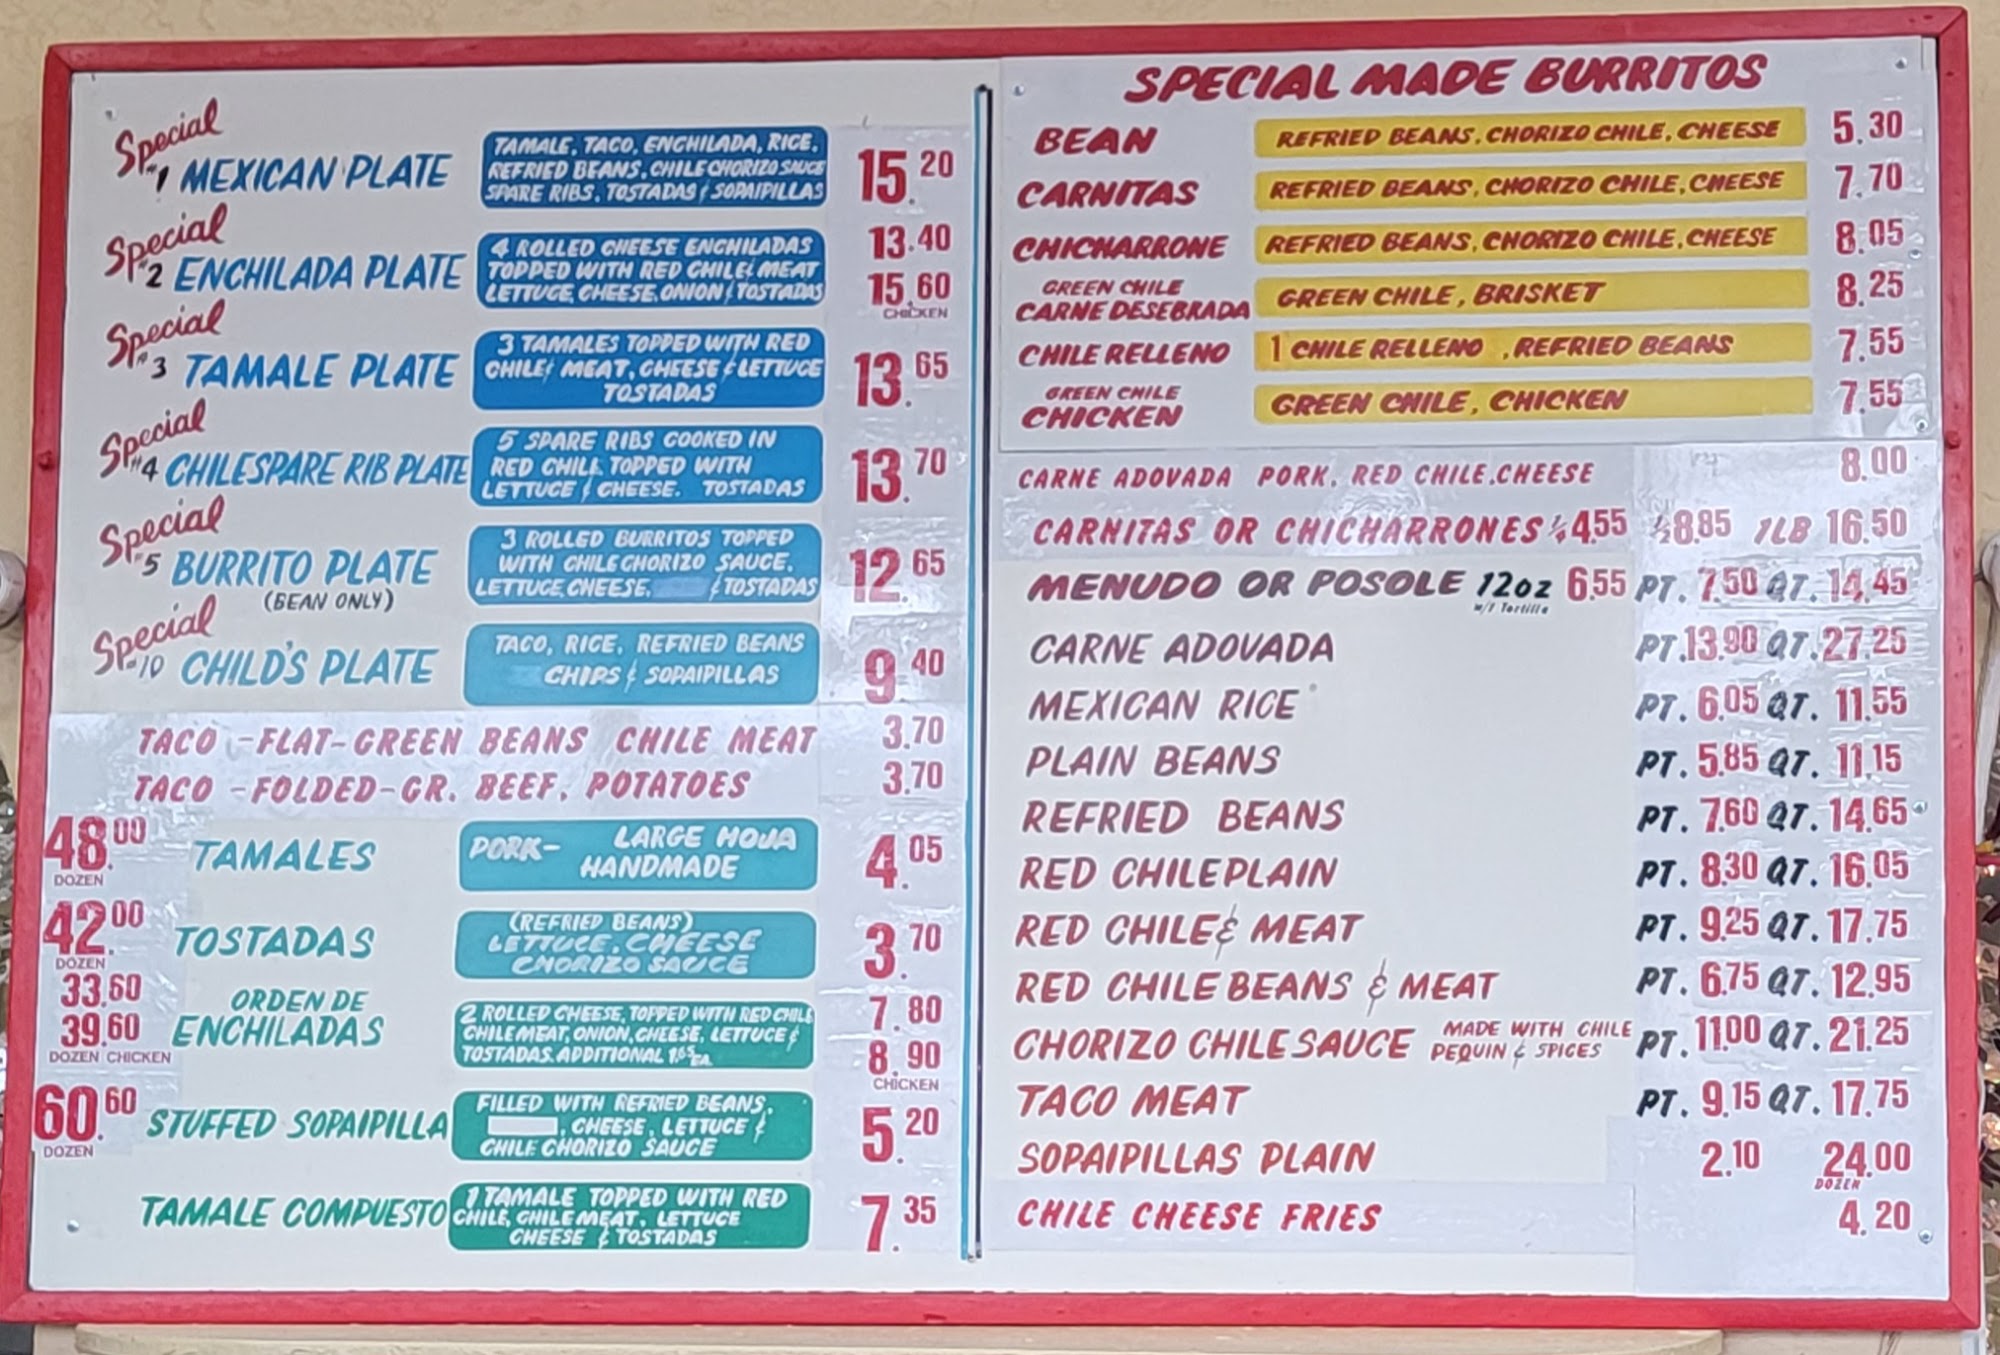 Special
#1 MEXICAN PLATE
TAMALE, TACO, ENCHILADA, RICE,
REFRIED BEANS, CHILE CHORIZO SAUCE
SPARE RIBS, TOSTADAS & SOPAIPILLAS
15.20
Special
#2 ENCHILADA PLATE
4 ROLLED CHEESE ENCHILADAS
TOPPED WITH RED CHILE & MEAT
LETTUCE, CHEESE, ONION & TOSTADAS
13.40
15.60
CHICKEN
Special
#3 TAMALE PLATE
3 TAMALES TOPPED WITH RED
CHILE & MEAT, CHEESE & LETTUCE
TOSTADAS
13.65
Special
#4 CHILE SPARE RIB PLATE
5 SPARE RIBS COOKED IN
RED CHILE TOPPED WITH
LETTUCE & CHEESE. TOSTADAS
13.70
Special
#5 BURRITO PLATE
(BEAN ONLY)
3 ROLLED BURRITOS TOPPED
WITH CHILE CHORIZO SAUCE.
LETTUCE, CHEESE, & TOSTADAS
12.65
Special
#10 CHILD'S PLATE
TACO, RICE, REFRIED BEANS
CHIPS & SOPAIPILLAS
9.40
TACO -FLAT-GREEN BEANS CHILE MEAT 3.70
TACO -FOLDED-GR. BEEF, POTATOES 3.70
48.00
DOZEN
TAMALES
PORK- LARGE HOJA
HANDMADE
4.05
42.00
DOZEN
TOSTADAS
(REFRIED BEANS)
LETTUCE, CHEESE
CHORIZO SAUCE
3.70
33.60
39.60
DOZEN CHICKEN
ORDEN DE
ENCHILADAS
2 ROLLED CHEESE, TOPPED WITH RED CHILE
CHILE MEAT, ONION, CHEESE, LETTUCE &
TOSTADAS. ADDITIONAL 1.65 EA.
7.80
8.90
CHICKEN
60.60
DOZEN
STUFFED SOPAIPILLA
FILLED WITH REFRIED BEANS,
, CHEESE, LETTUCE &
CHILE CHORIZO SAUCE
5.20
TAMALE COMPUESTO
1 TAMALE TOPPED WITH RED
CHILE, CHILE MEAT, LETTUCE
CHEESE & TOSTADAS
7.35
SPECIAL MADE BURRITOS
BEAN REFRIED BEANS, CHORIZO CHILE, CHEESE 5.30
CARNITAS REFRIED BEANS, CHORIZO CHILE, CHEESE 7.70
CHICHARRONE REFRIED BEANS, CHORIZO CHILE, CHEESE 8.05
GREEN CHILE
CARNE DESEBRADA GREEN CHILE, BRISKET 8.25
CHILE RELLENO 1 CHILE RELLENO , REFRIED BEANS 7.55
GREEN CHILE
CHICKEN GREEN CHILE, CHICKEN 7.55
CARNE ADOVADA PORK, RED CHILE, CHEESE 8.00
CARNITAS OR CHICHARRONES 1/4 4.55 1/2 8.85 1LB 16.50
MENUDO OR POSOLE 12oz 6.55 PT. 7.50 QT. 14.45
w/1 Tortilla
CARNE ADOVADA PT. 13.90 QT. 27.25
MEXICAN RICE PT. 6.05 QT. 11.55
PLAIN BEANS PT. 5.85 QT. 11.15
REFRIED BEANS PT. 7.60 QT. 14.65
RED CHILE PLAIN PT. 8.30 QT. 16.05
RED CHILE & MEAT PT. 9.25 QT. 17.75
RED CHILE BEANS & MEAT PT. 6.75 QT. 12.95
CHORIZO CHILE SAUCE MADE WITH CHILE
PEQUIN & SPICES PT. 11.00 QT. 21.25
TACO MEAT PT. 9.15 QT. 17.75
SOPAIPILLAS PLAIN 2.10 24.00
DOZEN
CHILE CHEESE FRIES 4.20